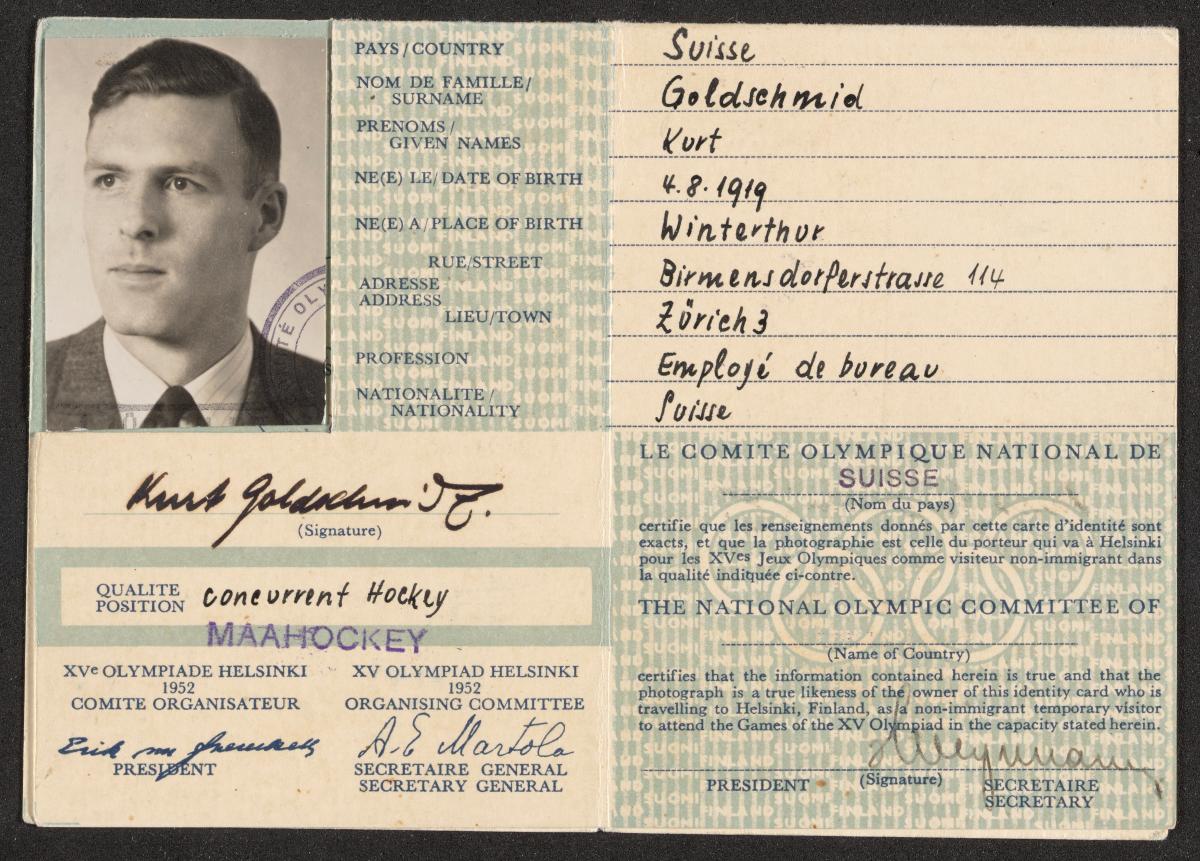 PAYS/COUNTRY Suisse
NOM DE FAMILLE/
SURNAME Goldschmid
PRENOMS/
GIVEN NAMES Kurt
NE(E) LE/DATE OF BIRTH 4.8.1919
NE(E) A/PLACE OF BIRTH Winterthur
RUE/STREET Birmensdorferstrasse 114
ADRESSE
ADDRESS
LIEU/TOWN Zürich 3
PROFESSION Employé de bureau
NATIONALITE/
NATIONALITY Suisse
TÉ OLY
Kurt Goldschmid
(Signature)
QUALITE
POSITION concurrent Hockey
MAAHOCKEY
XVe OLYMPIADE HELSINKI
1952
COMITE ORGANISATEUR
PRESIDENT
XV OLYMPIAD HELSINKI
1952
ORGANISING COMMITTEE
A.E Martola
SECRETAIRE GENERAL
SECRETARY GENERAL
LE COMITE OLYMPIQUE NATIONAL DE
SUISSE
(Nom du pays)
certifie que les renseignements donnés par cette carte d'identité sont
exacts, et que la photographie est celle du porteur qui va à Helsinki
pour les XVes Jeux Olympiques comme visiteur non-immigrant dans
la qualité indiquée ci-contre.
THE NATIONAL OLYMPIC COMMITTEE OF
(Name of Country)
certifies that the information contained herein is true and that the
photograph is a true likeness of the owner of this identity card who is
travelling to Helsinki, Finland, as a non-immigrant temporary visitor
to attend the Games of the XV Olympiad in the capacity stated herein.
PRESIDENT (Signature) SECRETAIRE
SECRETARY